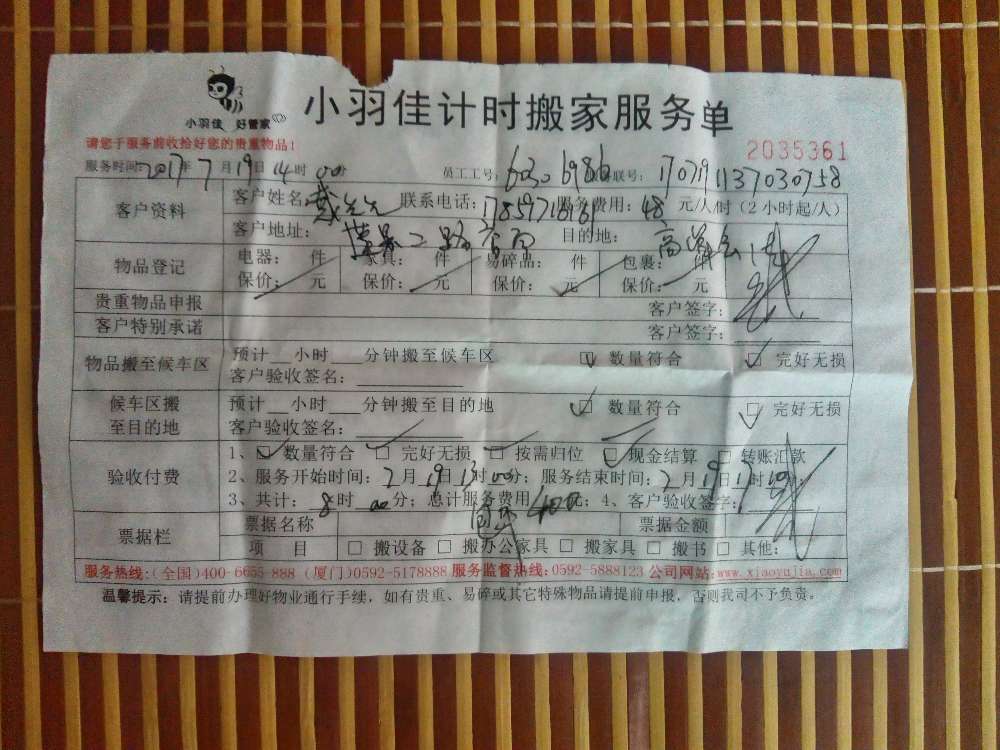 小羽佳 好管家
小羽佳计时搬家服务单
请您于服务前收拾好您的贵重物品！
2035361
服务时间：2017年7月19日14时00分 员工工号：6230 6986 联号：1707191137030758
客户资料 客户姓名：戴先生 联系电话：17859718181 服务费用：48元/人/时（2小时起/人）
客户地址： 二路 目的地：
物品登记 电器： 件 家具： 件 易碎品： 件 包裹： 件
保价： 元 保价： 元 保价： 元 保价： 元
贵重物品申报 客户签字：
客户特别承诺 客户签字：
物品搬至候车区 预计__小时___分钟搬至候车区 □ 数量符合 □ 完好无损
客户验收签名：
候车区搬至目的地 预计__小时___分钟搬至目的地 □ 数量符合 □ 完好无损
客户验收签名：
验收付费 1、□ 数量符合 □ 完好无损 □ 按需归位 □ 现金结算 □ 转账汇款
2、服务开始时间：7月19日13时00分；服务结束时间：7月19日17时00分
3、共计：8时00分；总计服务费用400元；4、客户验收签字：
票据栏 票据名称 票据金额
项 目 □ 搬设备 □ 搬办公家具 □ 搬家具 □ 搬书 □ 其他：
服务热线：（全国）400-6655-888（厦门）0592-5178888 服务监督热线：0592-5888123 公司网站：www.xiaoyujia.com
温馨提示：请提前办理好物业通行手续，如有贵重、易碎或其它特殊物品请提前申报，否则我司不予负责。